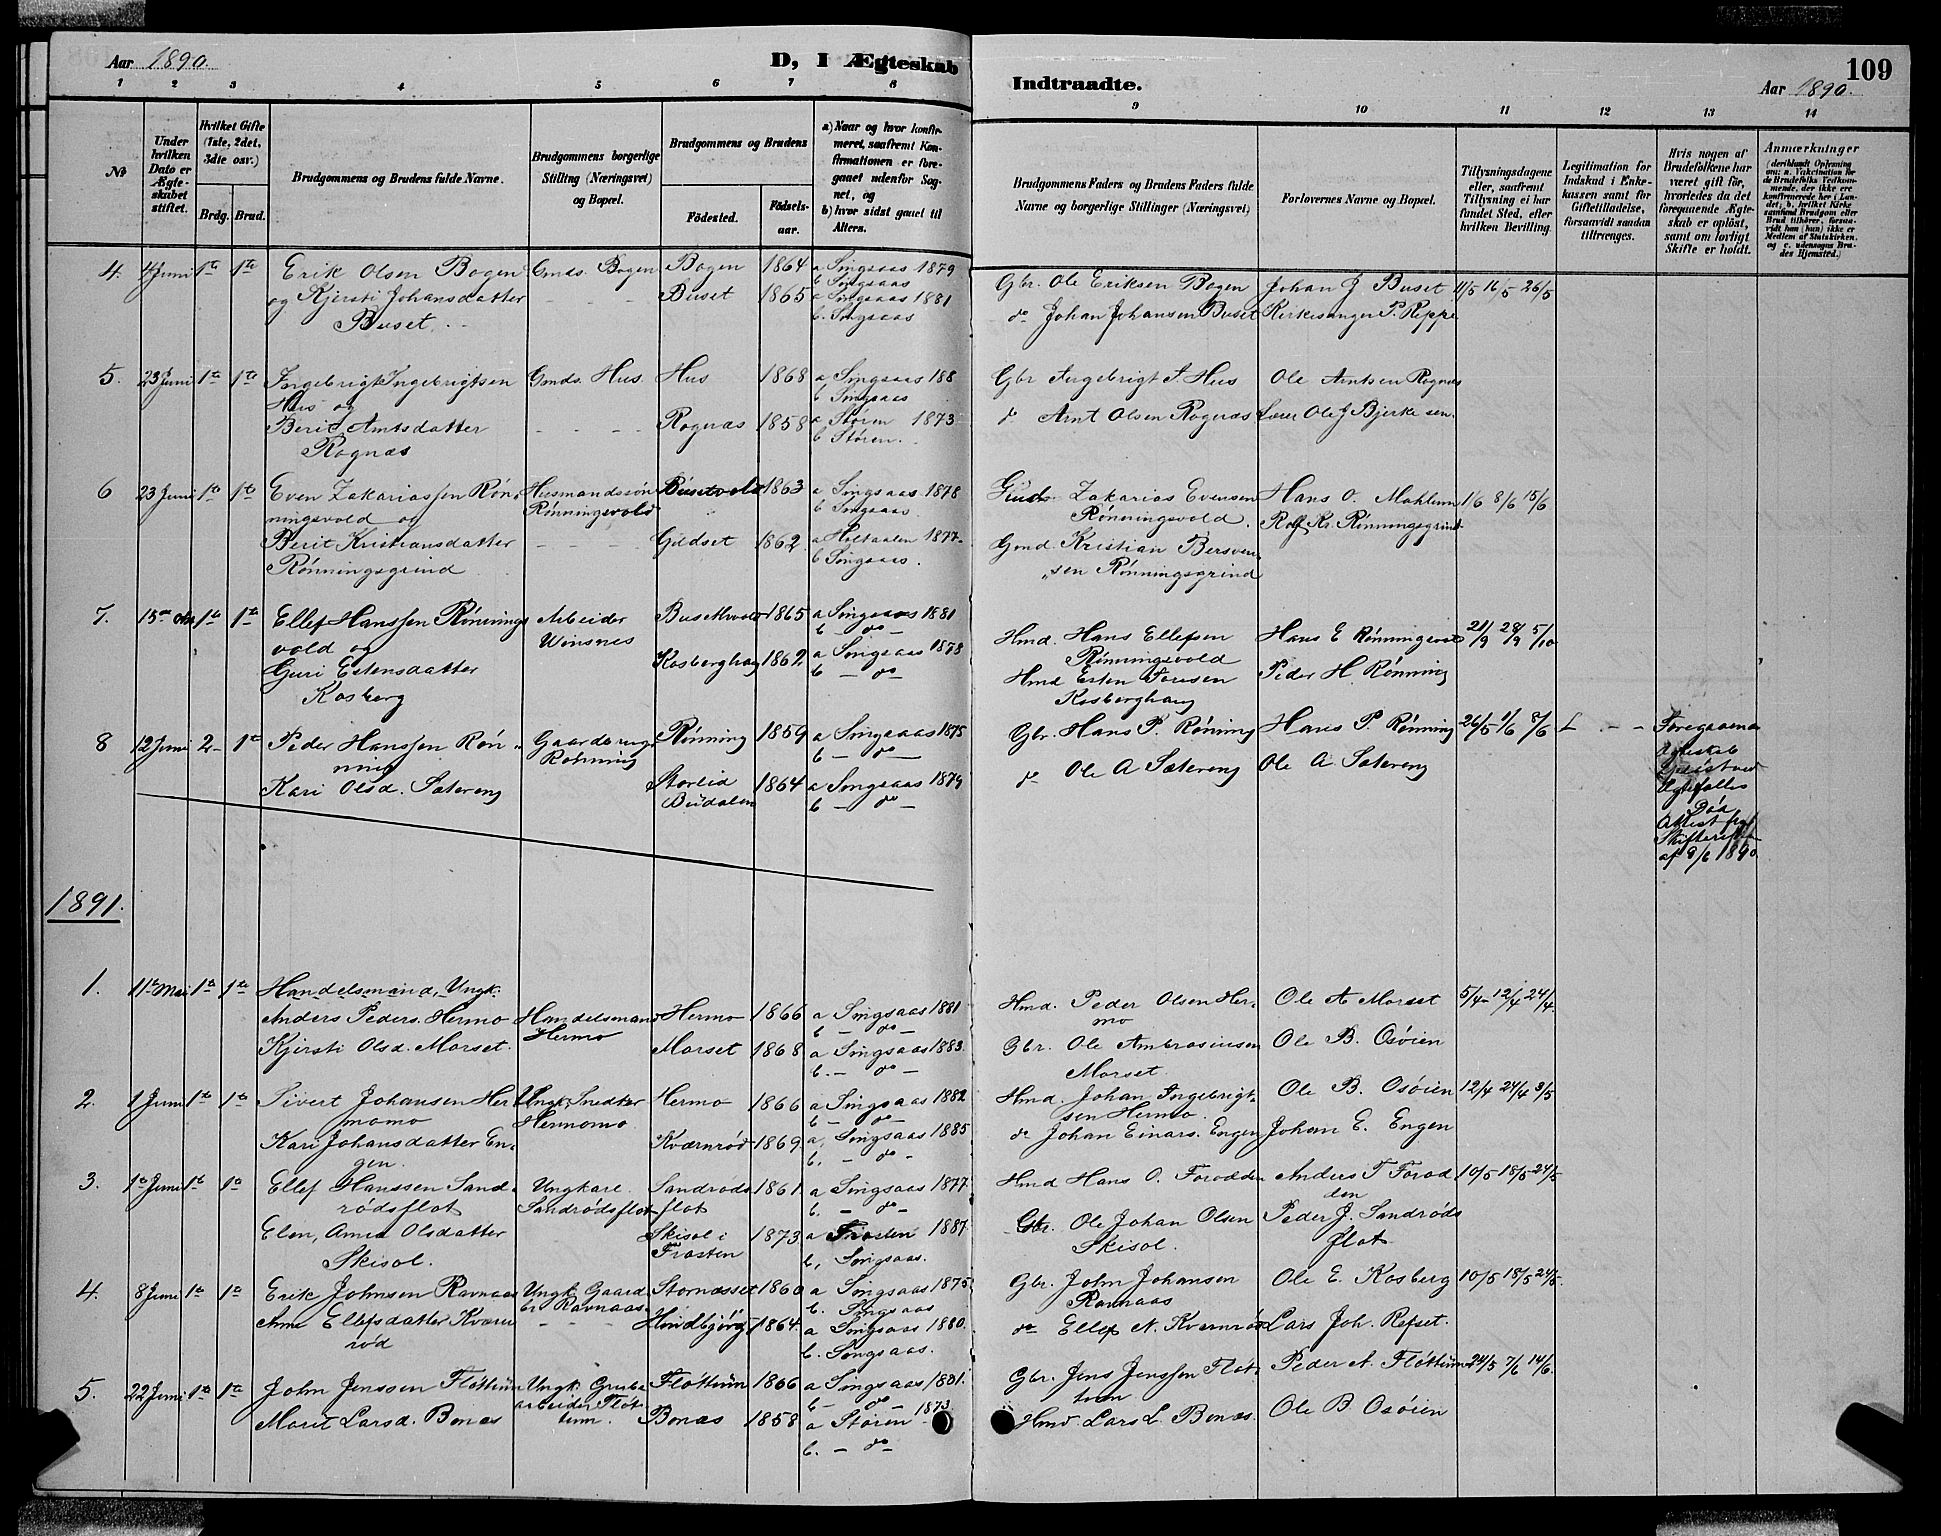 Aar 1890.
D, I Ægteskab
Indtraadte.
109
Aar 1890.
1 2 3 4 5 6 7 8
9 10 11 12 13 14
No
Under hvilken Dato er Ægteskabet stiftet.
Hvilket Gifte (1ste, 2det, 3die osv.)
Brdg. Brud.
Brudgommens og Brudens fulde Navne.
Brudgommens borgerlige Stilling (Næringsvei) og Bopæl.
Brudgommens og Brudens
Fødested.
Fødsels-aar.
a) Naar og hvor konfirmeret, saafremt Konfirmationen er foregaaet udenfor Sognet, og
b) hvor sidst gaaet til Alters.
Brudgommens Faders og Brudens Faders fulde Navne og borgerlige Stillinger (Næringsvei)
Forlovernes Navne og Bopæl.
Tillysningsdagene eller, saafremt Tillysning ei har fundet Sted, efter hvilken Bevilling.
Legitimation for Indskud i Enkekassen samt for Giftetilladelse, forsaavidt saadan tiltrænges.
Hvis nogen af Brudefolkene har været gift før, hvorledes da det foregaaende Ægteskab er opløst, samt om lovligt Skifte er holdt.
Anmærkninger
(deriblandt Oplysning om: a. Vaccination for de Brudefolks Vedkommende, der ikke ere konfirmerede her i Landet; b. hvilket Kirkesamfund Brudgom eller Brud tilhører, forsaavidt han (hun) ikke er Medlem af Statskirken, og c. udensogns Brudes Hjemsted.)
4. 4 Juni 1ste 1ste Erik Olsen Bogen Gmds. Bogen Bogen 1864 a Singsaas 1879
b Singsaas
og Kjersti Johansdatter Buset 1865 a Singsaas 1881
Buset. b. Singsaas
Gbr. Ole Eriksen Bogen Johan J Buset 11/5 16/5 26/5
do Johan Johansen Buset Kirkesanger P. Reppe
5. 23 Juni 1te 1te Ingebrigt Ingebrigtsen Gmds. Hus. Hus 1868 a Singsaas 188
Hus og b Singsaas
Berit Arntsdatter Rognæs 1858 a Støren 1873
Rognæs b Støren.
Gbr Ingebrigt I. Hus Ole Arntsen Rognæs
do Arnt Olsen Rognæs Lærer Ole J Bjerke sen.
6 23 Juni 1te 1te Even Zakariassen Røn- Husmandssøn Busetvold 1863 a Singsaas 1878
ningsvold og Rønningsvold b Singsaas
Berit Kristiansdatter Gildset 1862 a Holtaalen 1877
Rønningsgrind b Singsaas.
Zakarias Evensen Hans O. Mohlum 1/6 8/6 15/6
Rønningsvold. Rolf Kr. Rønningsgrind
Gmd. Kristian Bersven-
sen Rønningsgrind
7. 15de Okt 1te 1te Ellef Hanssen Rønnings Arbeider 1865 a Singsaas 1881
vold og Winsnes b - do -
Guri Estensdatter Kosberghaug 1862 a Singsaas 1878
Kosberg b - do -
Hmd. Hans Ellefsen Hans E Rønningsvold 21/9 28/9 5/10
Rønningsvold
Hmd Esten Peder H Rønning
Kosberghaug
8 12 Juni 2- 1te Peder Hanssen Røn- Gaardbruger Rønning 1859 a Singsaas 1875
ning Rønning b - do -
Kari Olsd. Sætereng Storlid 1864 a Singsaas 1879
Budalen b - do -
Gbr. Hans P. Rønning Hans P. Rønning 26/5 1/6 8/6 L - -
do Ole A Sætereng Ole A Sætereng
Foregaaende
Ægteskab
Ægtefælles
Død
Attest fra
Skifteretten
af 9/6 1890
1891.
1. 11te Mai 1te 1ste Handelsmand, Ungk.
Anders Peders. Hermo Handelsmand Hermo 1866 a Singsaas 1881
Hermo b - do -
Kjersti Olsd. Morset. Morset 1868 a Singsaas 1883.
b. - do -
Hmd. Peder Olsen Her- Ole A Morset 5/4 12/4 24/4.
mo
Gbr. Ole Ambrosiussen Ole B. Osøien
Morset.
2. 1 Juni 1te 1te Sivert Johansen Her Ungk. Snedker Hermo 1866 a Singsaas 1882
momo Hermomo b - do -
Kari Johansdatter En- Kværnrød 1869 a, Singsaas 1885
gen. b. - do -
Hmd. Johan Ingebrigt- Ole B. Osøien 12/4 24/4 3/5
sen Hermo.
do Johan Einars. Engen Johan E. Engen
3. 1te Juni 1te 1te Ellef Hanssen Sand- Ungkarl Sandrøds 1861 a Singsaas 1877
rødsflot Sandrødsflot flot b. - do -
Elen, Anna Olsdatter Skisol i 1873 a Frosten 1887.
Skisol. Frosten b, Singsaas.
Hmd Hans O. Forodden Anders T Forod 10/5 18/5 24/5
den
Gbr. Ole Johan Olsen Peder J. Sandrøds
Skisol. flot
4. 8 Juni 1te 1te Erik Johnsen Ravnaas Ungk. Gaard Stornæsset 1860 a Singsaas 1875
br Ravnaas b. Singsaas
Ane Ellefsdatter Kværn 1864. a Singsaas 1880.
rød b. Singsaas.
Gbr. John Johansen Ole E. Kosberg 10/5 18/5 24/5.
Ravnaas
do Ellef N. Kværnrød Lars Joh. Refset.
5. 22 Juni 1te 1te John Jenssen Fløttum Ungk. Grube Fløttum 1866 a Singsaas 1881.
arbeider Fløt- b - do -
Marit Larsd. Bonæs tum. Bonæs 1858 a Støren 1873
b. - do -
Gbr. Jens Jenssen Fløt- Peder A. Fløttum 24/5 7/6 14/6.
tum
Hmd Lars L. Bonæs. Ole B Osøien